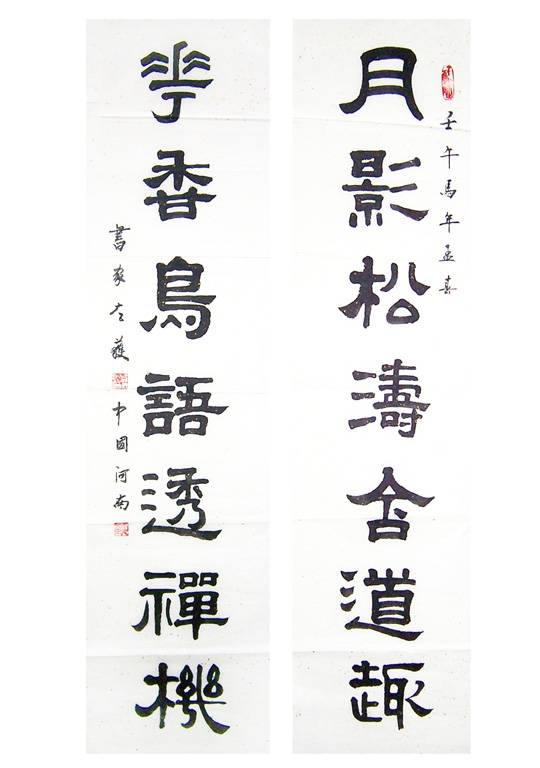 壬午馬年孟
月影松濤含道趣
花香鳥語透禪機
書家左護
中國河南